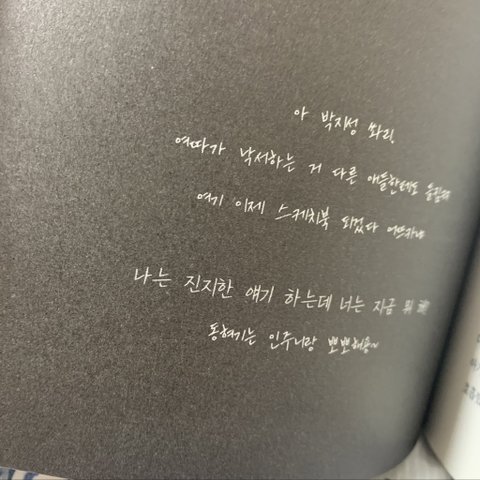 아 박지성 쏴리!
여따가 낙서하는 거 다른 애들한테도
여기 이제 스케치북 되겄다 어뜨카냐
나는 진지한 얘기 하는데 너는 지금 뭐
동혀기는 인주니랑 뽀뽀해용~